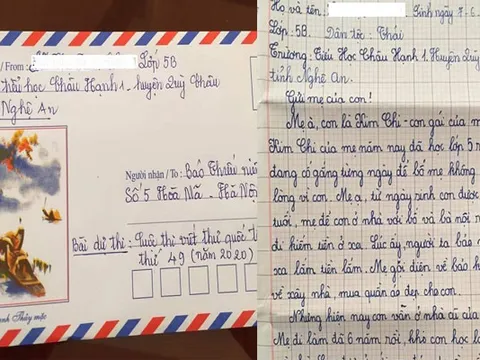 / From :
Lớp 5B
tiểu học Châu Hạnh 1 - huyện Quỳ Châu
Nghệ An
Người nhận / To : Báo Thiếu niê
Số 5 Hoà Mã - Hà Nộ
Bài dự thi : Cuộc thi viết thư quốc t
thứ 49 (năm 2020)
anh Thủy mặc
Họ và tên: Sinh ngày 7-6
Lớp: 5B. Dân tộc: Thái
Trường: Tiểu Học Châu Hạnh 1, Huyện Quỳ
tỉnh Nghệ An.
Gửi mẹ của con!
Mẹ à, con là Kim Chi - con gái của m
Kim Chi của mẹ năm nay đã học lớp 5 r
đang cố gắng từng ngày để bố mẹ không
lòng vì con. Mẹ ạ, từ ngày sinh con được
tuổi, mẹ để con ở nhà với bố và bà nội r
đi kiếm tiền ở xa. Lúc ấy, người ta bảo m
xa lắm tiền lắm. Mẹ gọi điện về bảo k
về xây nhà, mua quần áo đẹp cho con.
Nhưng hiện nay con vẫn ở nhà cũ của
Mẹ đi làm đã 6 năm rồi, khi con học l